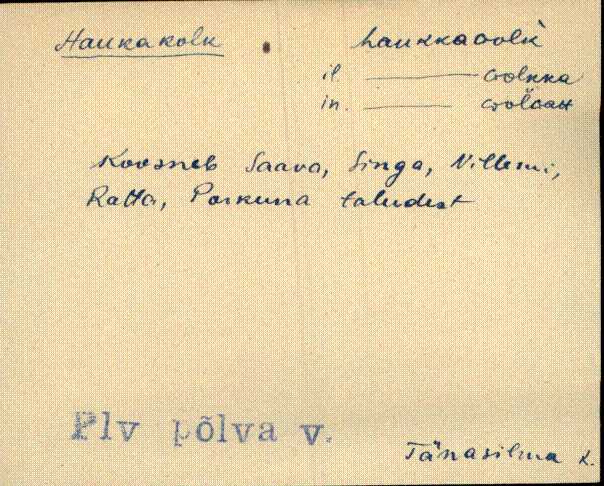 Haukakolk haukkaoolk
il. — oolkka
in.
Koosneb Saava, Singa, Villemi,
Ratta, Porkuna taludest
Plv põlva v.
Tänasilma k.